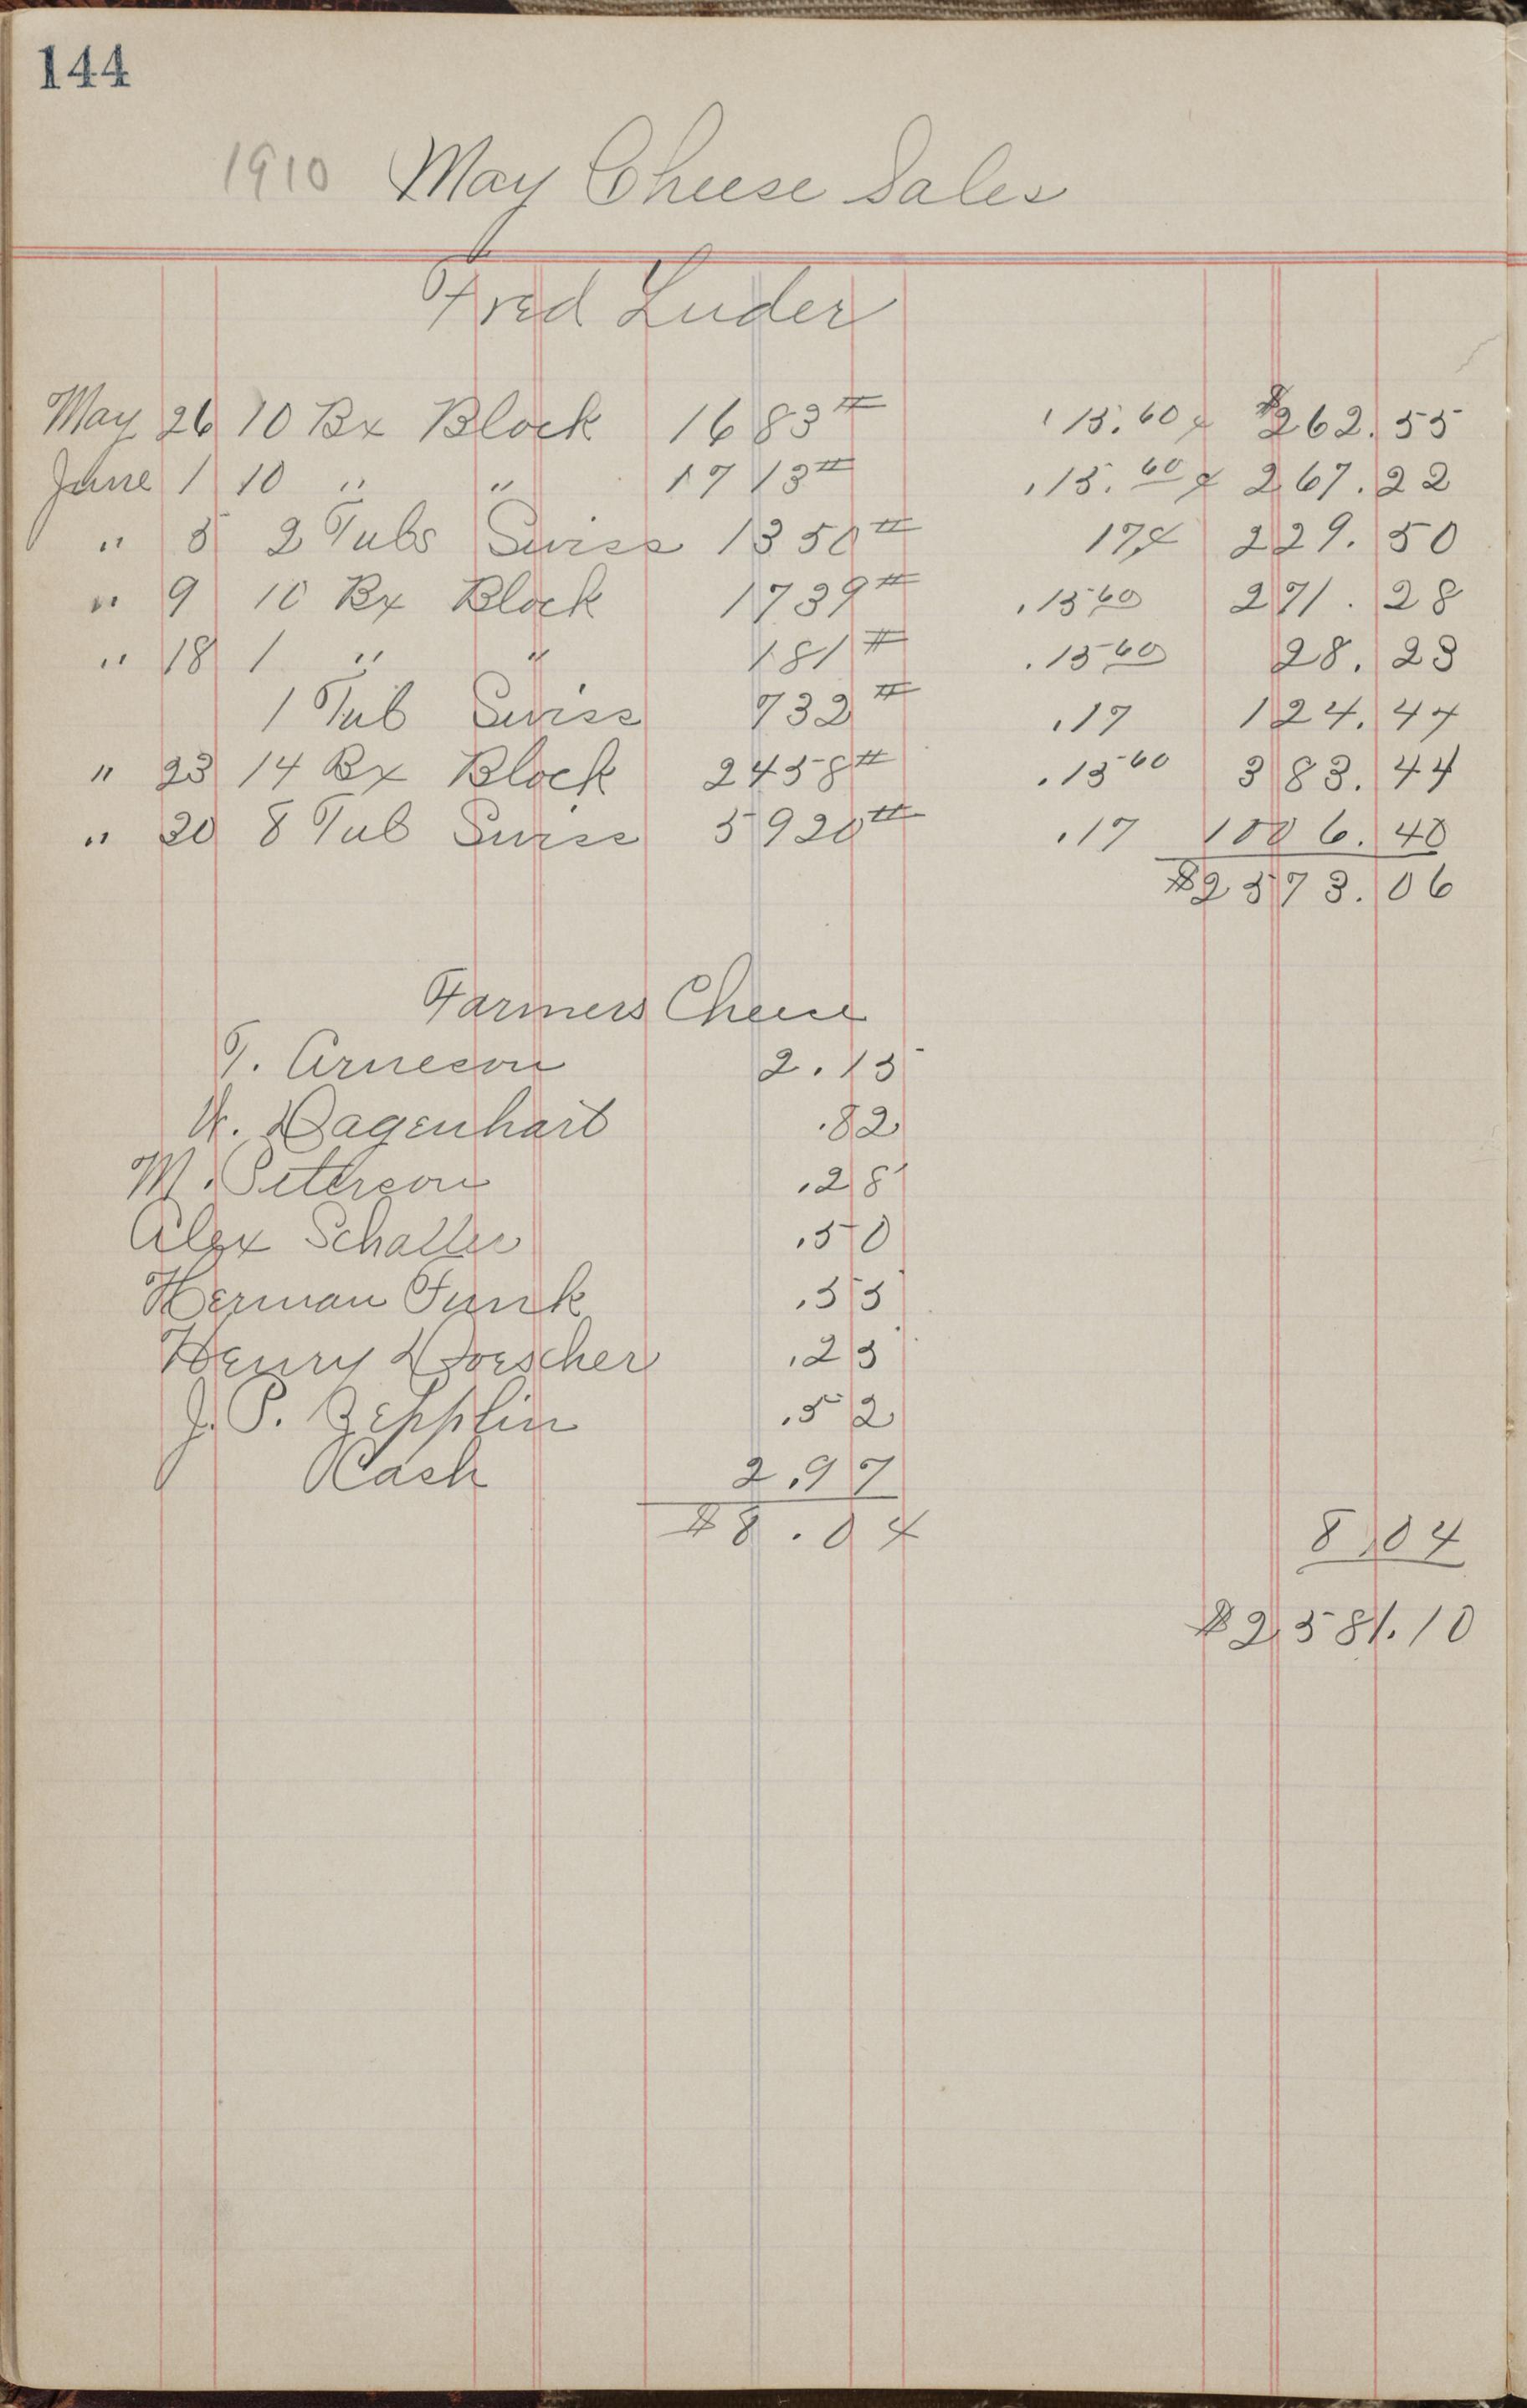 144
1910 May Cheese Sales
Fred Luder
May 26 10 Bx Block 1683# .15.60¢ $262.55
June 1 10 " " 1713# .15.60¢ 267.22
" 5 2 Tubs Swiss 1350# 17¢ 229.50
" 9 10 Bx Block 1739# .15 60 271.28
" 18 1 " " 181# .15 60 28.23
1 Tub Swiss 732# .17 124.44
" 23 14 Bx Block 2458# .15 60 383.44
" 30 8 Tub Swiss 5920# .17 1006.40
$2573.06
Farmers Cheese
T. Arneson 2.15
W. Dagenhart .82
M. Peterson .28
Alex Schaller .50
Herman Funk .55
Henry Doescher .25
J. P. Zepplin .52
Cash 2.97
$8.04 8.04
$2581.10